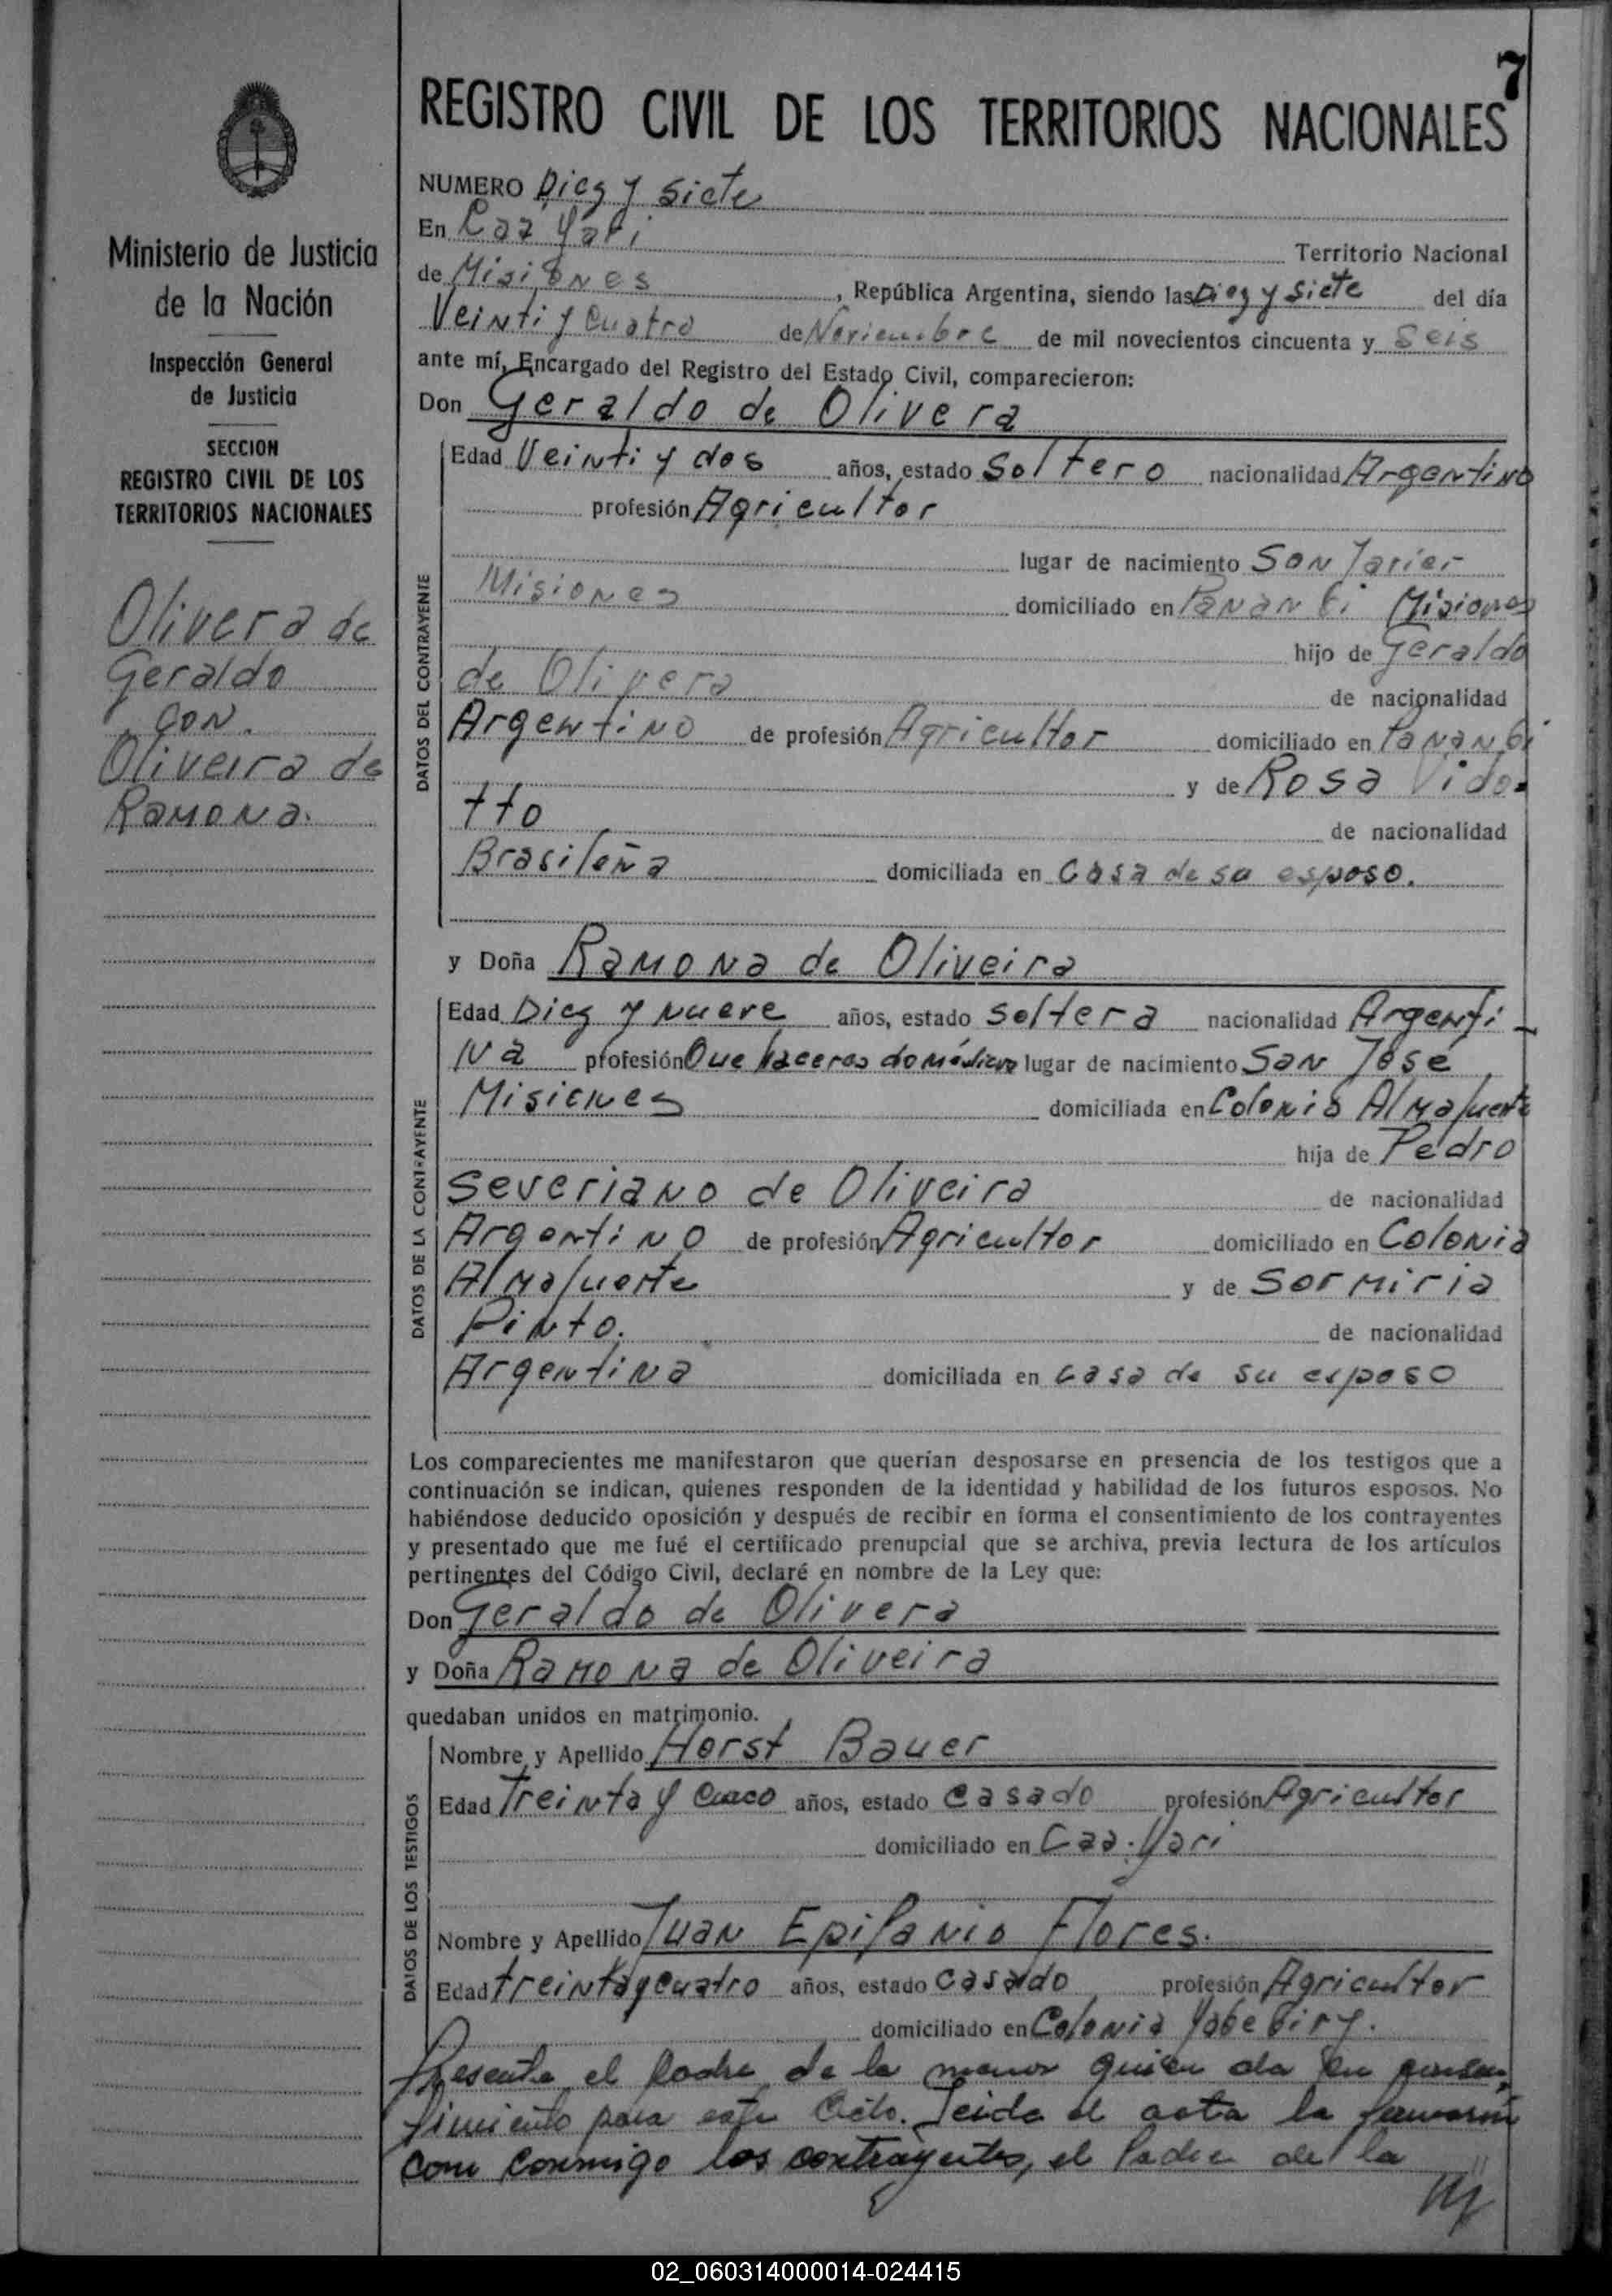 7
REGISTRO CIVIL DE LOS TERRITORIOS NACIONALES
Ministerio de Justicia
de la Nación
Inspección General
de Justicia
SECCION
REGISTRO CIVIL DE LOS
TERRITORIOS NACIONALES
Olivera de
Geraldo
con.
Oliveira de
Ramona.
NUMERO Diez y siete
En Caá Yarí
Territorio Nacional
de Misiones, República Argentina, siendo las Diez y siete del día
Veinti y cuatro de Noviembre de mil novecientos cincuenta y seis
ante mí, Encargado del Registro del Estado Civil, comparecieron:
Don Geraldo de Olivera
DATOS DEL CONTRAYENTE
Edad Veinti y dos años, estado Soltero nacionalidad Argentino
profesión Agricultor
lugar de nacimiento San Javier
Misiones domiciliado en Panambi Misiones
hijo de Geraldo
de Olivera de nacionalidad
Argentino de profesión Agricultor domiciliado en Panambi
y de Rosa Vido-
tto de nacionalidad
Brasileña domiciliada en Casa de su esposo.
y Doña Ramona de Oliveira
DATOS DE LA CONTRAYENTE
Edad Diez y nueve años, estado soltera nacionalidad Argenti-
na profesión Que haceres domésticos lugar de nacimiento San José
Misiones domiciliada en Colonia Almafuerte
hija de Pedro
Severiano de Oliveira de nacionalidad
Argentino de profesión Agricultor domiciliado en Colonia
Almafuerte y de Sormiria
Pinto. de nacionalidad
Argentina domiciliada en casa de su esposo
Los comparecientes me manifestaron que querían desposarse en presencia de los testigos que a
continuación se indican, quienes responden de la identidad y habilidad de los futuros esposos. No
habiéndose deducido oposición y después de recibir en forma el consentimiento de los contrayentes
y presentado que me fué el certificado prenupcial que se archiva, previa lectura de los artículos
pertinentes del Código Civil, declaré en nombre de la Ley que:
Don Geraldo de Olivera
y Doña Ramona de Oliveira
quedaban unidos en matrimonio.
DATOS DE LOS TESTIGOS
Nombre y Apellido Horst Bauer
Edad Treinta y cinco años, estado casado profesión Agricultor
domiciliado en Caa-Yari
Nombre y Apellido Juan Epifanio Flores.
Edad treinta y cuatro años, estado casado profesión Agricultor
domiciliado en Colonia Yabebiry.
Presente el Padre de la menor quien da su consen-
timiento para este Acto. Leida el acta la firmaron
con conmigo los contrayentes, el Padre de la
02_060314000014-024415